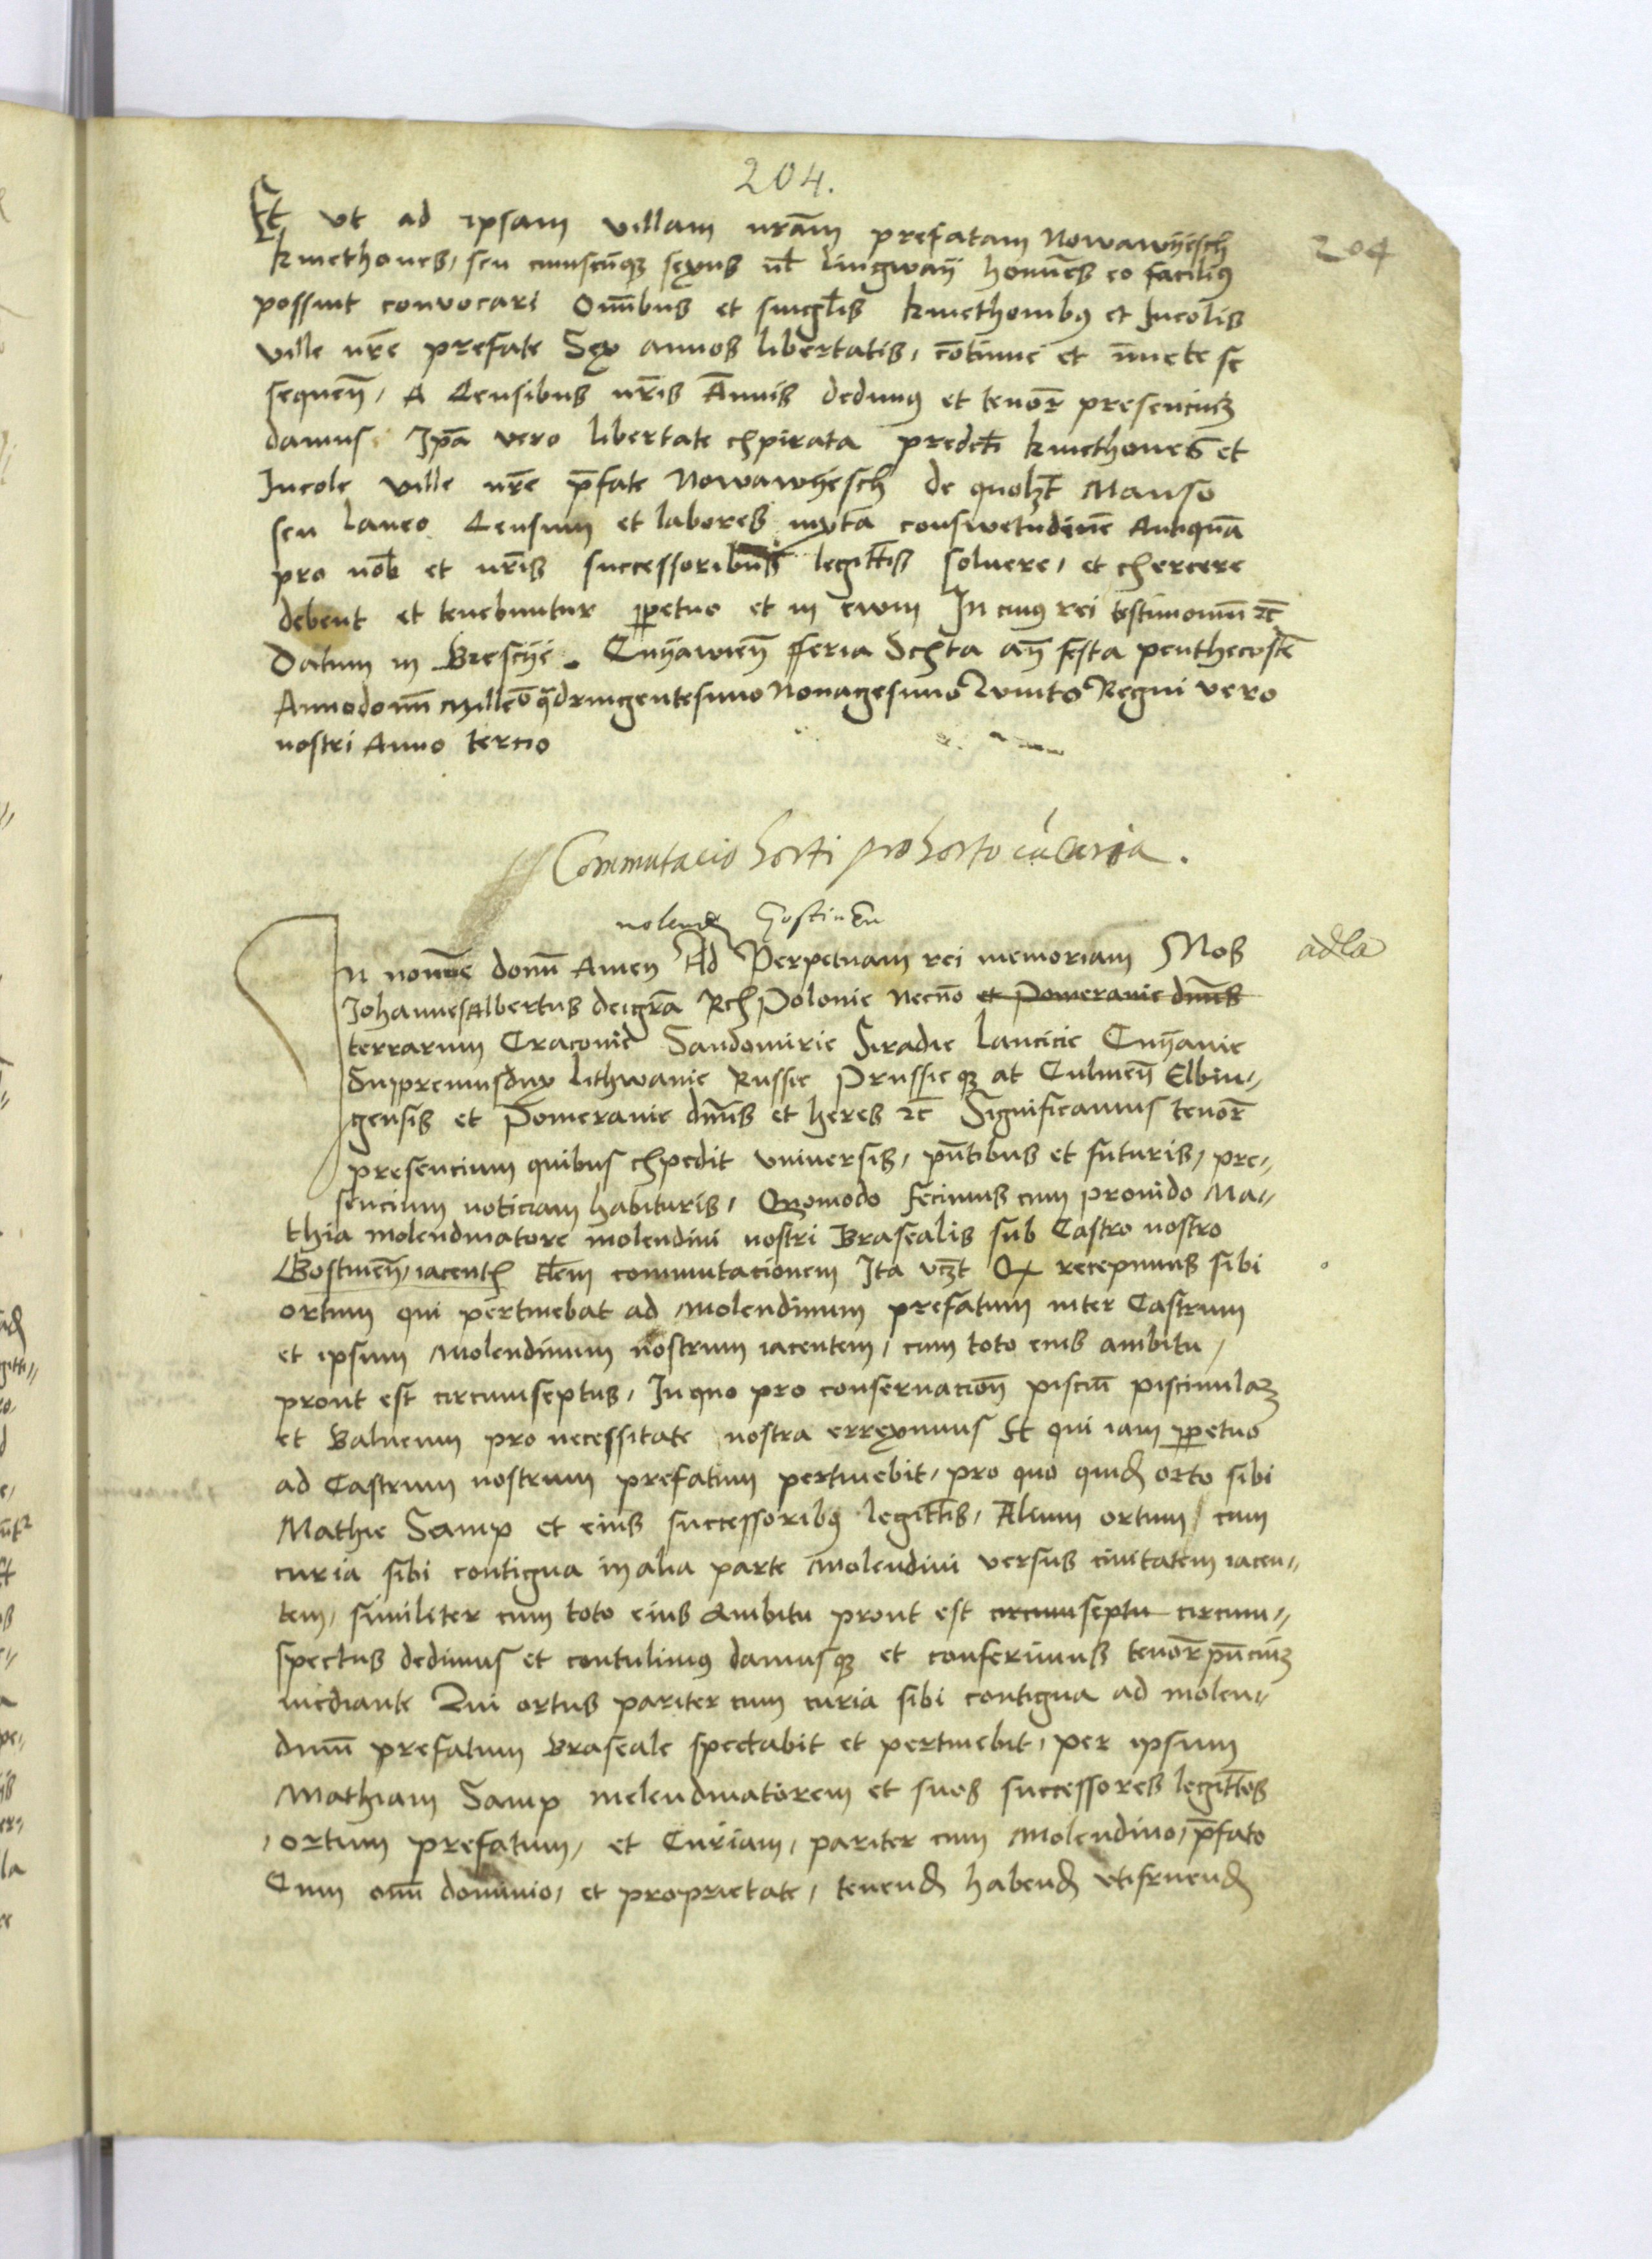 204.
204
Et vt ad ipsam villam nr̄am prefatam Nowawyesch
kmethones, seu cuiuscūq; sexus vl̄ lingwagÿ homīes eo facili9
possint convocari Om̄ibus et singl̄is kmethonib9 et Incolis
ville nr̄e prefate Sex annos libertatis, cōtinue et īmete se
sequen̄, A Censibus nr̄is Ān̄uis dedim9 et tenor̄ presenciu3
damus Ip̄a vero libertate expirata predct̄i kmethones et
Incole ville nr̄e p̄fate Nowawyesch de quol3t Manso
seu laneo Censum et labores iuxta conswetudinē Antiquā
pro nob̄ et nr̄is successoribus legitt̄is soluere, et exercere
debent et tenebuntur ꝑpetuo et in ewm In cui9 rei testimoniū ꝛc̄
Datum in Brescye. Cuyawien̄ fferia Sexta an̄ festa penthecostē
Annodomī Millēo quadringentesimo Nonagesimo Quinto Regni vero
nostri Anno tercio
Commutacio horti pro horto cū curia.
molend Gostinen
In nomīe domī Amen Ad Perpetuam rei memoriam Nos
adla
JohannesAlbertus deigr̄a Rex Polonie Necnō et Pomeranie dn̄us
terrarum Craconie Sandomirie Siradie Lancicie Cuyauie
Suppremusdux Lithwanie Russie Prussieq; at Culmen̄ Elbin,,
gensis et Pomeranie dn̄us et heres ꝛc̄ Significamus tenor̄
presencium quibus expedit vniuersis, pn̄tibus et futuris, pre,,
sencium noticiam habituris, Quomodo fecimus cum prouido Ma,,
thia molendinatore molendini nostri Brasealis sub Castro nostro
Gostinen̄, iacent tl̄em commutacionem Ita vc3t Qr recepimus sibi
ortum qui pertinebat ad Molendinum prefatum inter Castrum
et ipsum Molendinum nostrum iacentem, cum toto eius ambitu,
prout est circumseptus, In quo pro conseruacion̄ pisciū piscinula3
et Balneum pro necessitate nostra erreximus Et qui iam ꝑpetuo
ad Castrum nostrum prefatum pertinebit, pro quo quid orto sibi
Mathie Samp et eius successorib9 legitt̄is, Alium ortum, cum
curia sibi contigua in alia parte Molendini versus ciuitatem iacen,,
tem, similiter cum toto eius Ambitu prout est circumseptu circum,,
spectus dedimus et contulim9 damusq; et conferimus tenor̄ pn̄ciu3
mediante Qui ortus pariter cum curia sibi contigua ad molen,,
dinū prefatum Braseale spectabit et pertinebit, per ipsum
Mathiam Samp melendinatorem et suos successores legitt̄os
, ortum prefatum, et Curiam, pariter cum Molendino, p̄fato
Cum om̄i dominio, et proprietate, tenend habend vtifruend